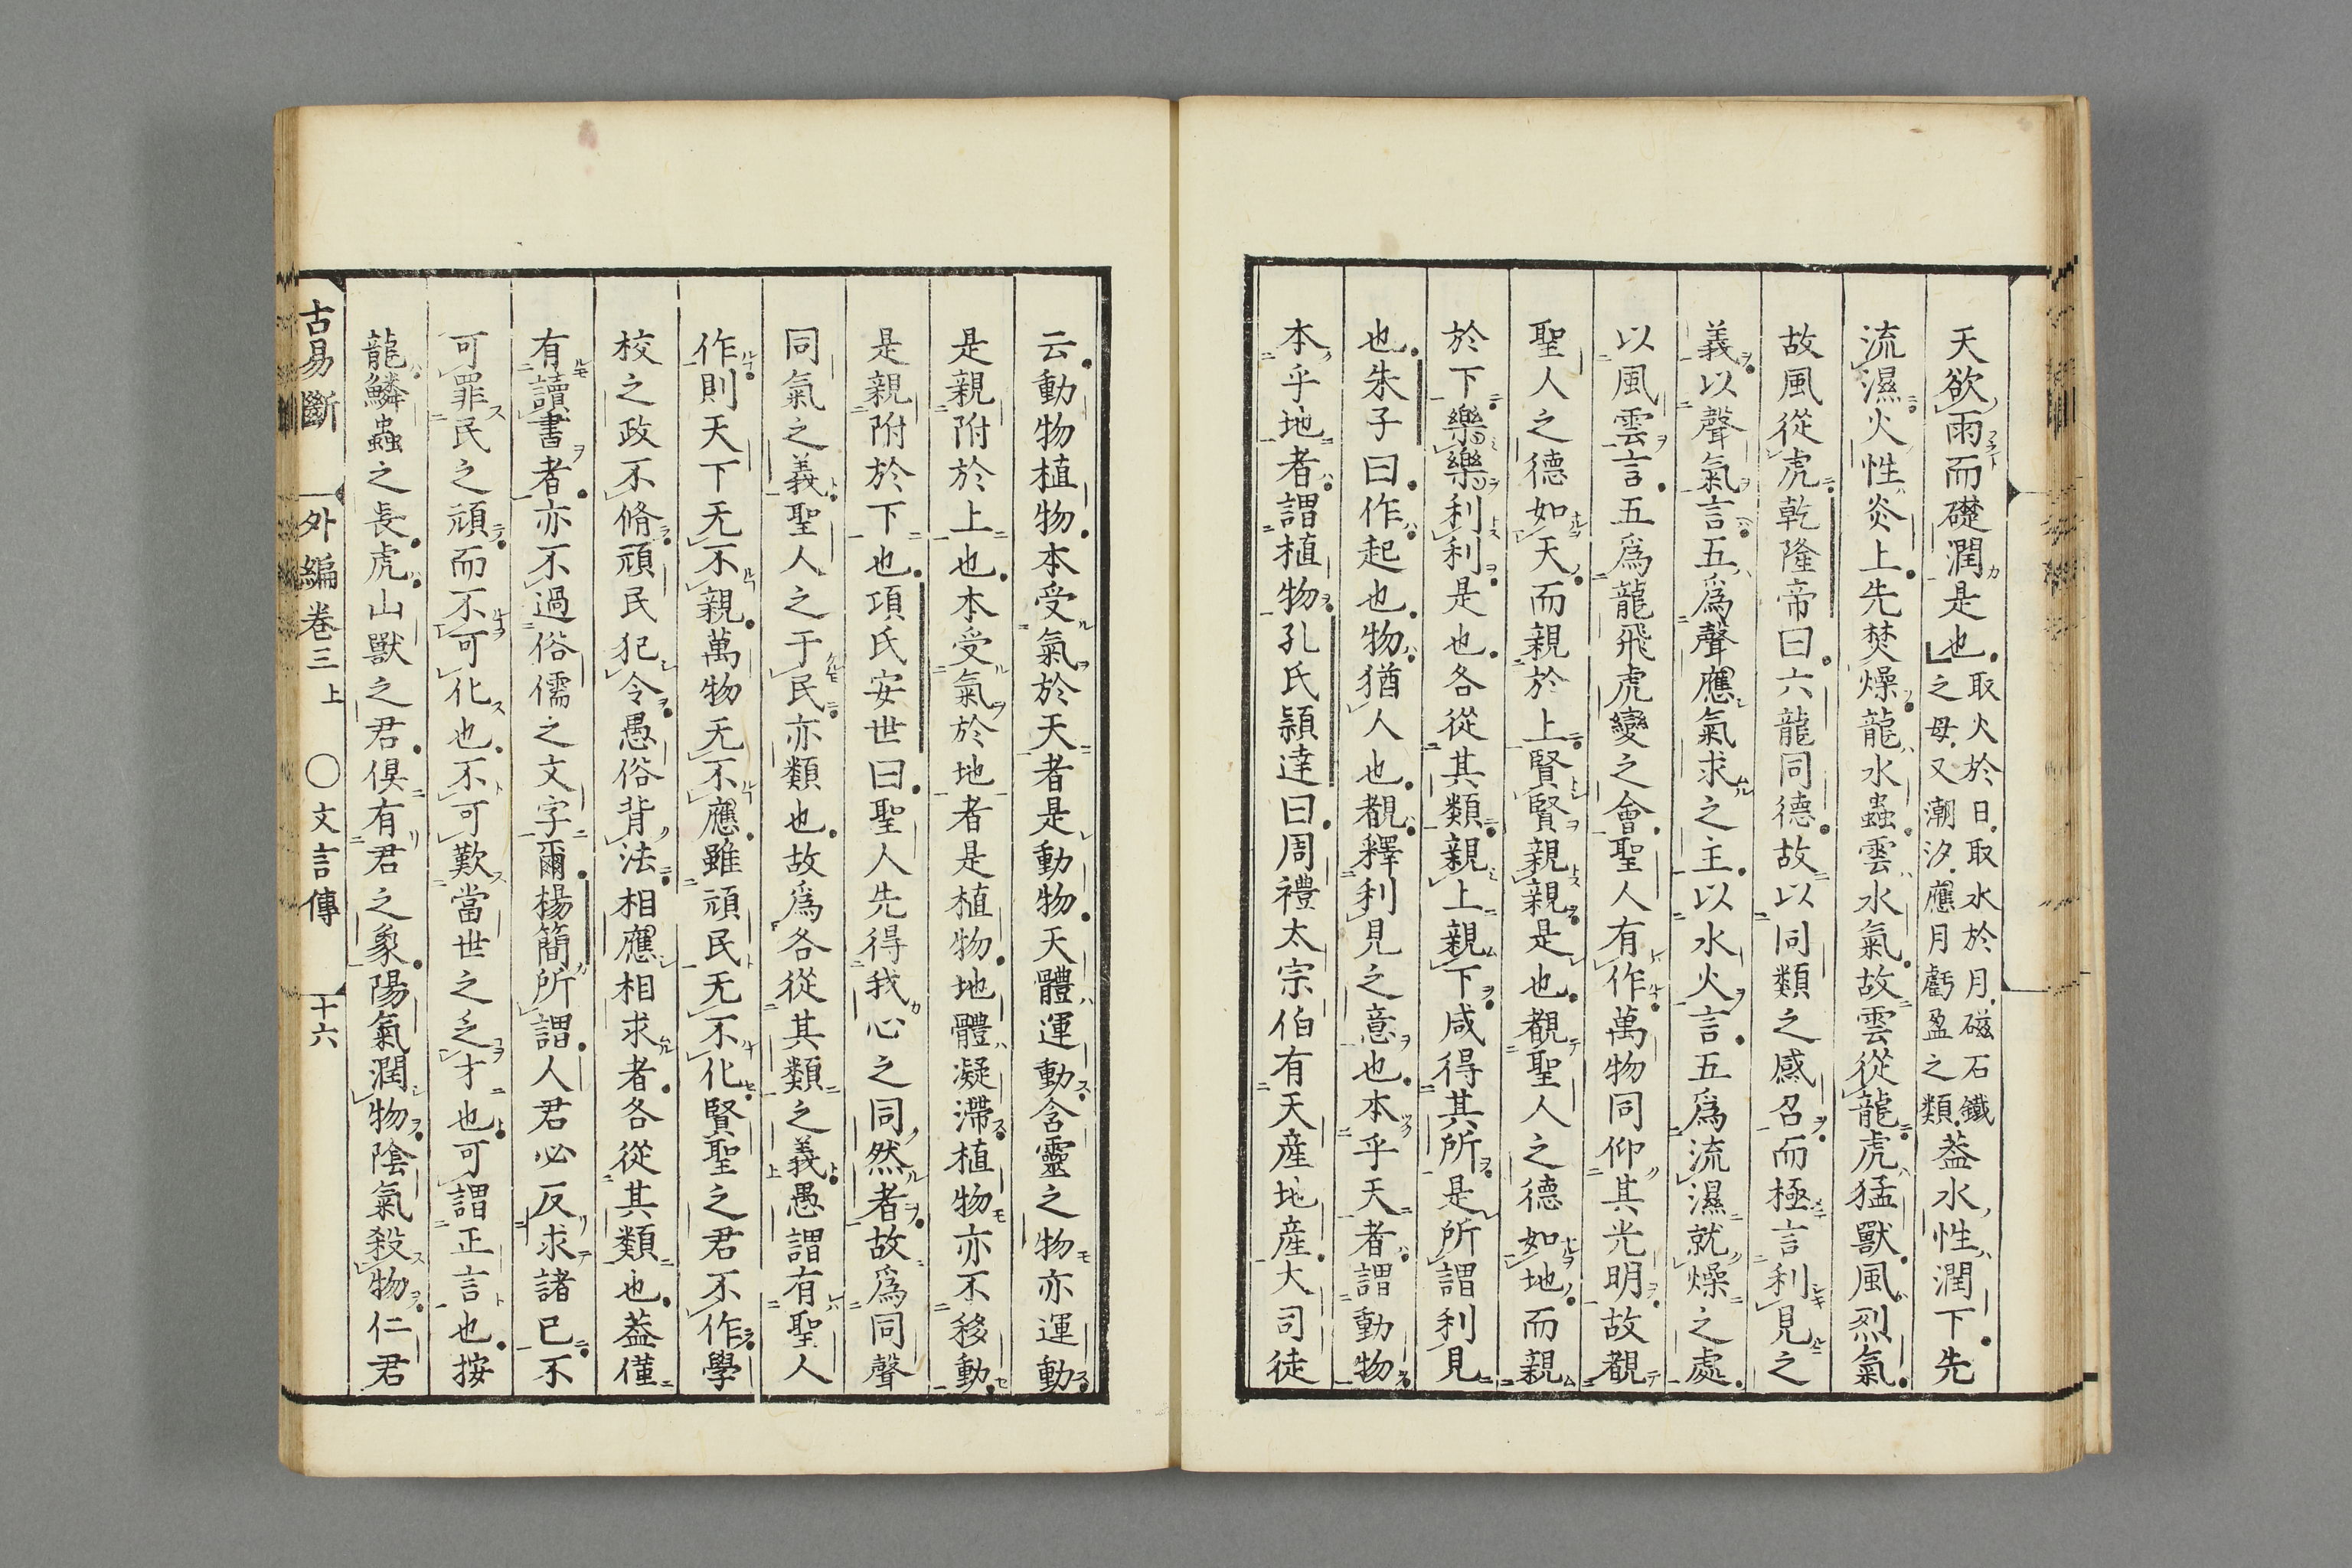 天欲雨而礎潤是也取火於日取水於月磁石鐵之母又潮汐應月虧盈之類葢水性潤下先
流濕火性炎上先焚燥龍水蟲雲水氣故雲從龍虎猛獸風烈氣
故風從虎乾隆帝曰六龍同德故以同類之感召而極言利見之
義以聲氣言五爲聲應氣求之主以水火言五爲流濕就燥之處
以風雲言五爲龍飛虎變之會聖人有作萬物同仰其光明故覩
聖人之德如天而親於上賢賢親親是也覩聖人之德如地而親
於下樂樂利利是也各從其類親上親下咸得其所是所謂利見
也朱子曰作起也物猶人也覩釋利見之意也本乎天者謂動物
本乎地者謂植物孔氏穎達曰周禮太宗伯有天産地産大司徒
云動物植物本受氣於天者是動物天體運動含靈之物亦運動
是親附於上也本受氣於地者是植物地體凝滯植物亦不移動
是親附於下也項氏安世曰聖人先得我心之同然者故爲同聲
同氣之義聖人之于民亦類也故爲各從其類之義愚謂有聖人
作則天下无不親萬物无不應雖頑民无不化賢聖之君不作學
校之政不脩頑民犯令愚俗背法相應相求者各從其類也葢僅
有讀書者亦不過俗儒之文字爾楊簡所謂人君必反求諸已不
可罪民之頑而不可化也不可歎當世之乏才也可謂正言也按
龍鱗蟲之長虎山獸之君俱有君之象陽氣潤物陰氣殺物仁君
古易斷 外編卷三上 ○文言傳 十六